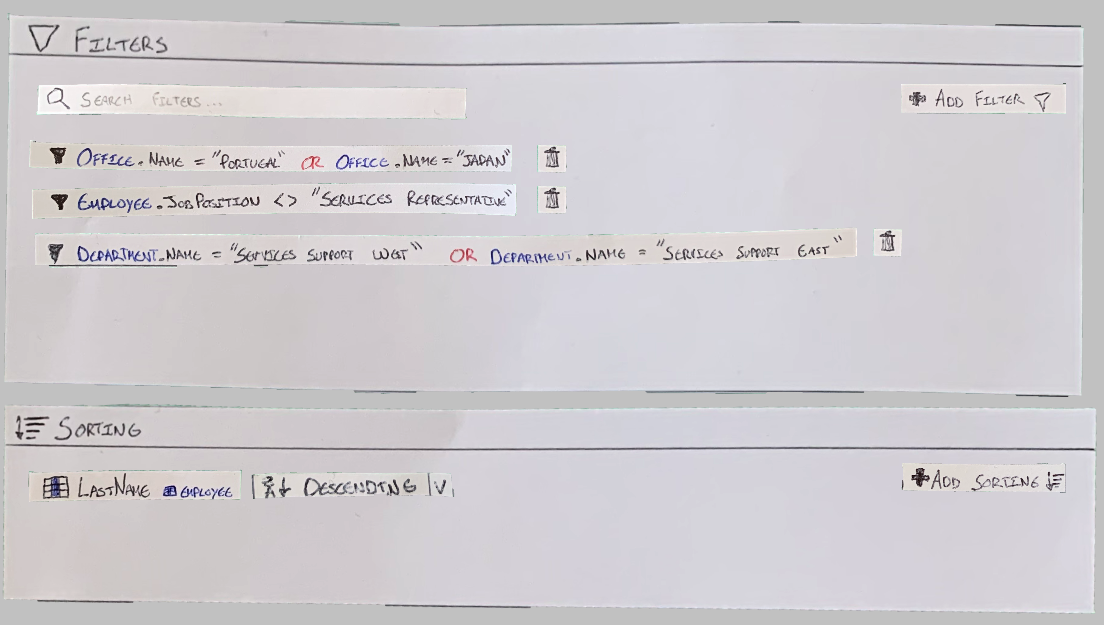 FILTERS
SEARCH FILTERS...
ADD FILTER
OFFICE.NAME = "PORTUGAL" OR OFFICE.NAME = "JAPAN"
EMPLOYEE.JOBPOSITION <> "SERVICES REPRESENTATIVE"
DEPARTMENT.NAME = "SERVICES SUPPORT WEST" OR DEPARTMENT.NAME = "SERVICES SUPPORT EAST"
SORTING
LASTNAME EMPLOYEE DESCENDING
ADD SORTING